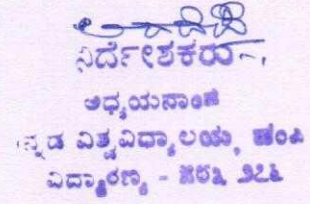 ನಿರ್ದೇಶಕರು
ಅಧ್ಯಯನಾಂಗ
ನ್ನಡ ವಿಶ್ವವಿದ್ಯಾಲಯ, ಹಂಪಿ
ವಿದ್ಯಾರಣ್ಯ - ೫೮೩ ೨೭೬